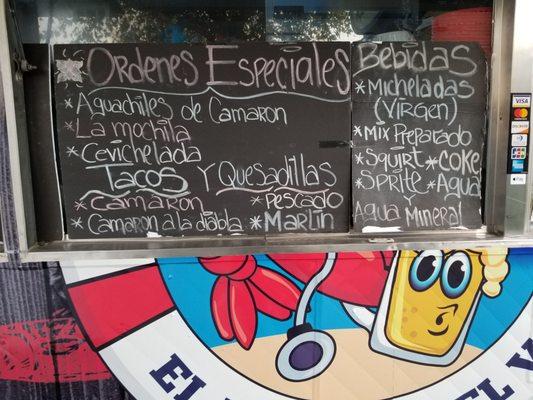 Ordenes Especiales
* Aguachiles de Camaron
* La mochila
* Cevichelada
Tacos Y Quesadillas
* Camaron
* Pescado
* Camaron a la diabla
* Marlin
Bebidas
* Micheladas
(Virgen)
* Mix Preparado
* Squirt * Coke
* Sprite * Agua
Y
Agua Mineral
VISA
DISCOVER
EL
Y
EL